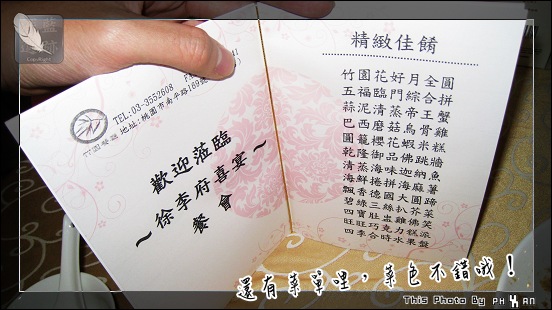 竹園餐廳
TEL:03-3552608
地址:桃園市南平路
歡迎蒞臨
~徐李府喜宴~
餐會
精緻佳餚
竹園花好月全圓
五福臨門綜合拼
蒜泥清蒸帝王蟹
巴西磨菇烏骨雞
圓籠櫻花蝦米糕
乾隆御品佛跳牆
清蒸海味迦納魚
海鮮捲拼海麻薯
飄香德國大圓蹄
碧綠三絲扒芥菜
四寶肚盅雞佛笑
旺旺巧克力糕派
四季合時水果盤
還有菜單哩,菜色不錯哦!
This Photo By PH HAN